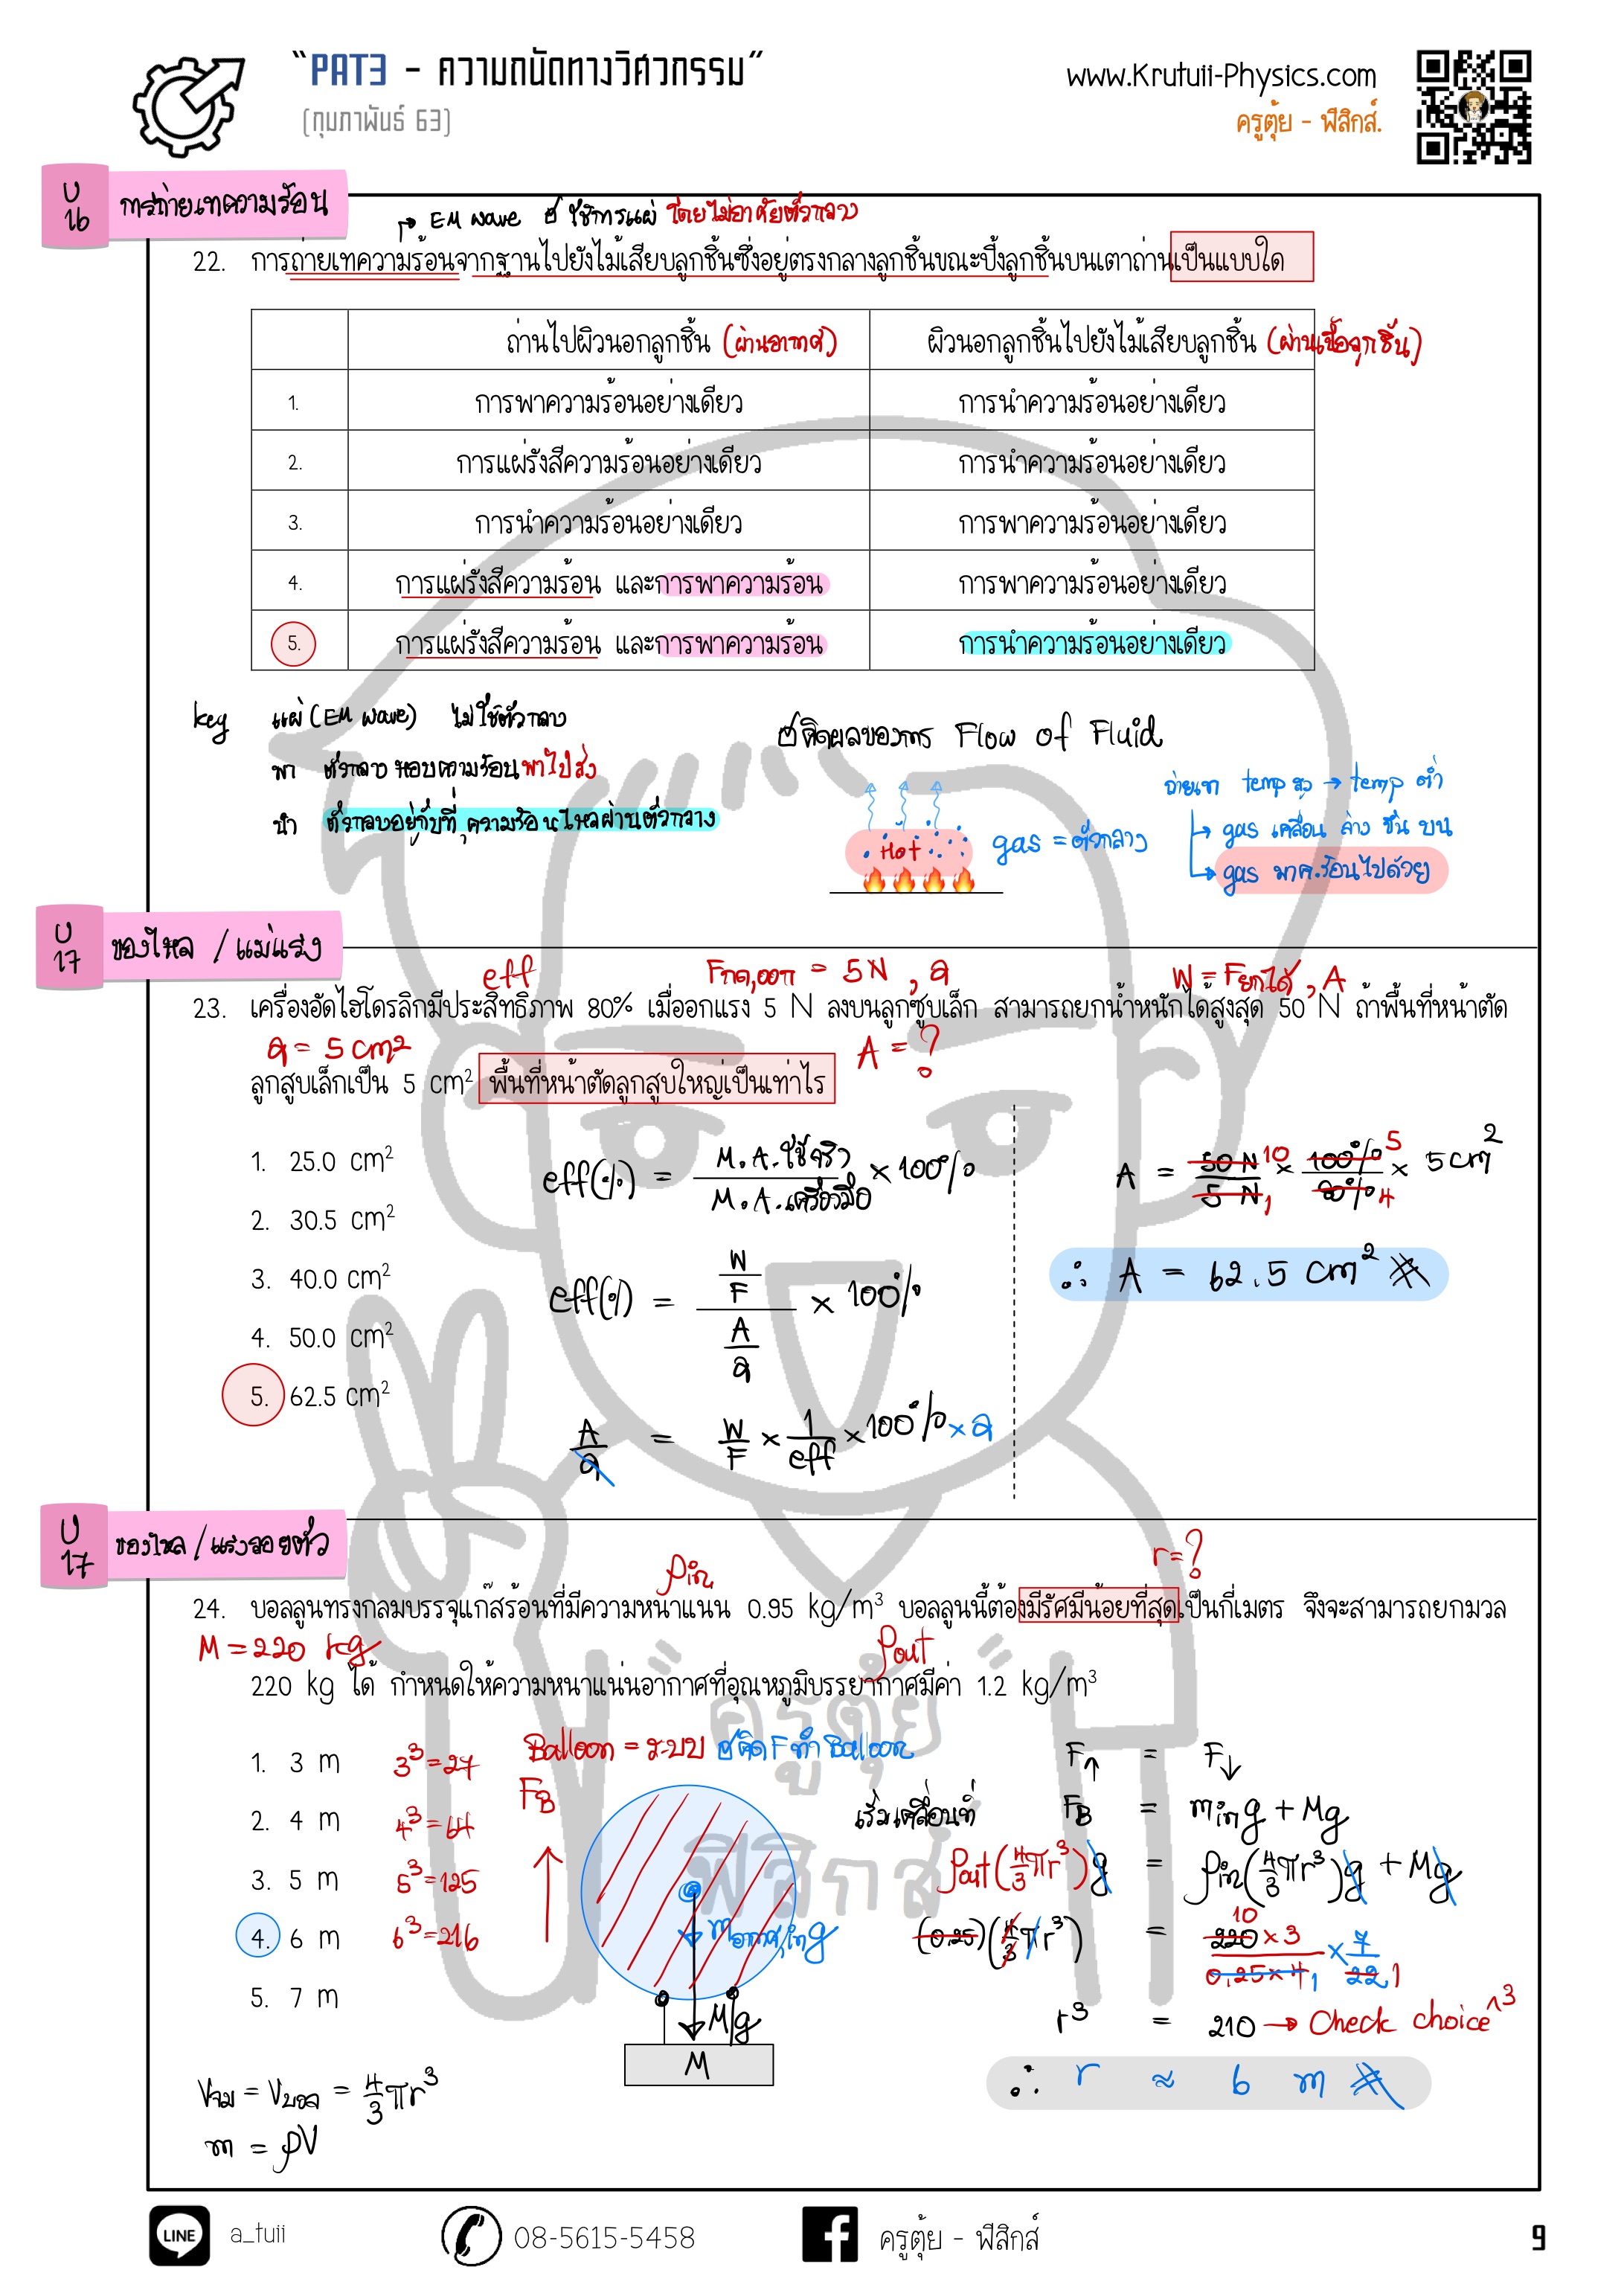 “PAT3 - ความถนัดทางวิศวกรรม”
(กุมภาพันธ์ 63)
www.Krutuii-Physics.com
ครูตุ้ย - ฟิสิกส์.
บ 16 การถ่ายเทความร้อน
→ EM wave ใช้การแผ่ โดยไม่อาศัยตัวกลาง
22. การถ่ายเทความร้อนจากฐานไปยังไม้เสียบลูกชิ้นซึ่งอยู่ตรงกลางลูกชิ้นขณะปิ้งลูกชิ้นบนเตาถ่านเป็นแบบใด
ถ่านไปผิวนอกลูกชิ้น (ผ่านอากาศ) ผิวนอกลูกชิ้นไปยังไม้เสียบลูกชิ้น (ผ่านเนื้อลูกชิ้น)
1. การพาความร้อนอย่างเดียว การนำความร้อนอย่างเดียว
2. การแผ่รังสีความร้อนอย่างเดียว การนำความร้อนอย่างเดียว
3. การนำความร้อนอย่างเดียว การพาความร้อนอย่างเดียว
4. การแผ่รังสีความร้อน และการพาความร้อน การพาความร้อนอย่างเดียว
5. การแผ่รังสีความร้อน และการพาความร้อน การนำความร้อนอย่างเดียว
key แผ่ (EM wave) ไม่ใช้ตัวกลาง
พา ตัวกลาง หอบความร้อนพาไปส่ง
นำ ตัวกลางอยู่กับที่ ความร้อนไหลผ่านตัวกลาง
คิดผลของการ Flow of Fluid
Hot gas = ตัวกลาง
ถ่ายเท temp สูง → temp ต่ำ
→ gas เคลื่อน ล่าง ขึ้น บน
→ gas พาค.ร้อนไปด้วย
บ 17 ของไหล / แม่แรง
eff Fกด,ออก = 5 N , a W = Fยกได้ , A
23. เครื่องอัดไฮโดรลิกมีประสิทธิภาพ 80% เมื่ออกแรง 5 N ลงบนลูกซูบเล็ก สามารถยกน้ำหนักได้สูงสุด 50 N ถ้าพื้นที่หน้าตัด
a = 5 cm² A = ?
ลูกสูบเล็กเป็น 5 cm² พื้นที่หน้าตัดลูกสูบใหญ่เป็นเท่าไร
1. 25.0 cm²
2. 30.5 cm²
3. 40.0 cm²
4. 50.0 cm²
5. 62.5 cm²
eff(%) = M.A.ใช้จริง / M.A.เครื่องมือ × 100%
eff(%) = (W/F) / (A/a) × 100%
A/a = W/F × 1/eff × 100% × a
A = 50 N / 5 N 10 1 × 100% / 80% 5 4 × 5 cm²
∴ A = 62.5 cm²
บ 17 ของไหล / แรงลอยตัว
ρin r = ?
24. บอลลูนทรงกลมบรรจุแก๊สร้อนที่มีความหนาแนน 0.95 kg/m³ บอลลูนนี้ต้องมีรัศมีน้อยที่สุดเป็นกี่เมตร จึงจะสามารถยกมวล
M = 220 kg ρout
220 kg ได้ กำหนดให้ความหนาแน่นอากาศที่อุณหภูมิบรรยากาศมีค่า 1.2 kg/m³
1. 3 m 3³ = 27
2. 4 m 4³ = 64
3. 5 m 5³ = 125
4. 6 m 6³ = 216
5. 7 m
Balloon = ระบบ คิด F ทำ Balloon
FB
mอากาศ,in g
Mg
M
F↑ = F↓
เริ่มเคลื่อนที่ FB = min g + Mg
ρout(4/3 πr³)g = ρin(4/3 πr³)g + Mg
(0.25)(4/3 πr³) = 220 × 3 / 0.25 × 4 × 7/22 10 1 1
r³ = 210 → Check choice^3
∴ r ≈ 6 m
Vจม = Vบอล = 4/3 πr³
m = ρV
“ครูตุ้ย
ฟิสิกส์”
LINE a_tuii 08-5615-5458 ครูตุ้ย - ฟิสิกส์ 9